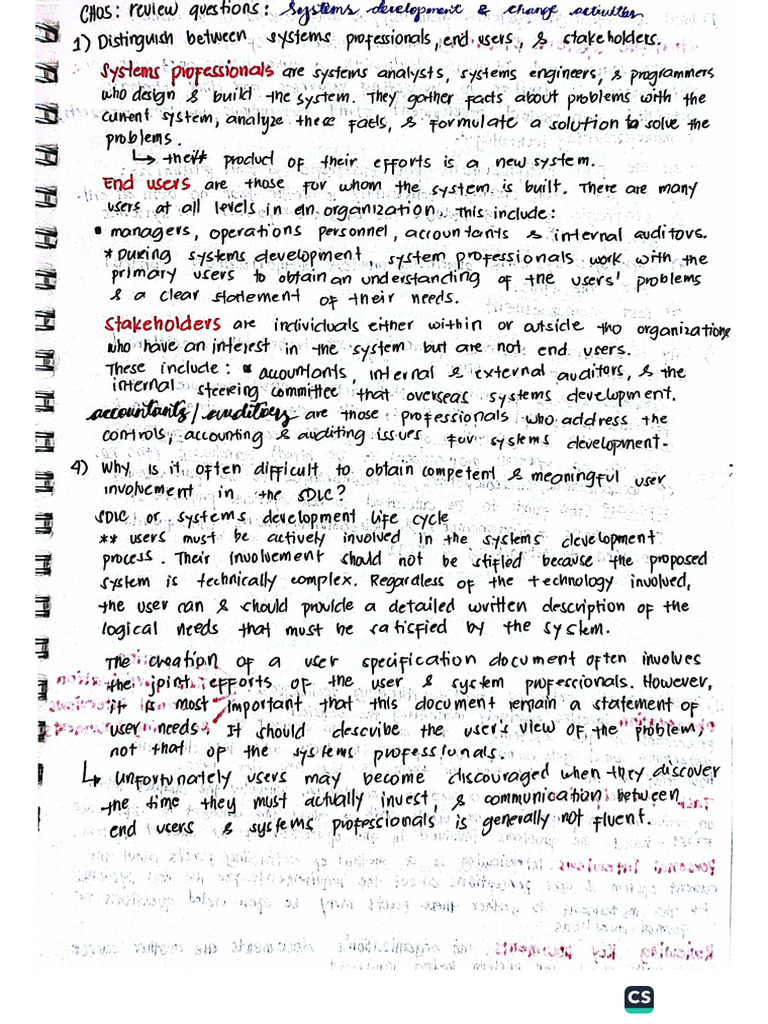 CH05: review questions: Systems development & change activities
1) Distinguish between systems professionals, end users, & stakeholders.
Systems professionals are systems analysts, systems engineers, & programmers
who design & build the system. They gather facts about problems with the
current system, analyze these facts, & formulate a solution to solve the
problems.
↳ their product of their efforts is a new system.
End users are those for whom the system is built. There are many
users at all levels in an organization. This include:
• managers, operations personnel, accountants & internal auditors.
* During systems development, system professionals work with the
primary users to obtain an understanding of the users' problems
& a clear statement of their needs.
Stakeholders are individuals either within or outside the organizations
who have an interest in the system but are not end users.
These include: • accountants, internal & external auditors, & the
internal steering committee that overseas systems development.
accountants/auditors are those professionals who address the
controls, accounting & auditing issues for systems development.
4) Why is it often difficult to obtain competent & meaningful user
involvement in the SDLC?
SDLC or systems development life cycle
** users must be actively involved in the systems development
process. Their involvement should not be stifled because the proposed
system is technically complex. Regardless of the technology involved,
the user can & should provide a detailed written description of the
logical needs that must be satisfied by the system.
The creation of a user specification document often involves
the joint efforts of the user & system professionals. However,
it is most important that this document remain a statement of
user needs. It should describe the user's view of the problem,
not that of the systems professionals.
↳ Unfortunately users may become discouraged when they discover
the time they must actually invest, & communication between
end users & systems professionals is generally not fluent.
CS